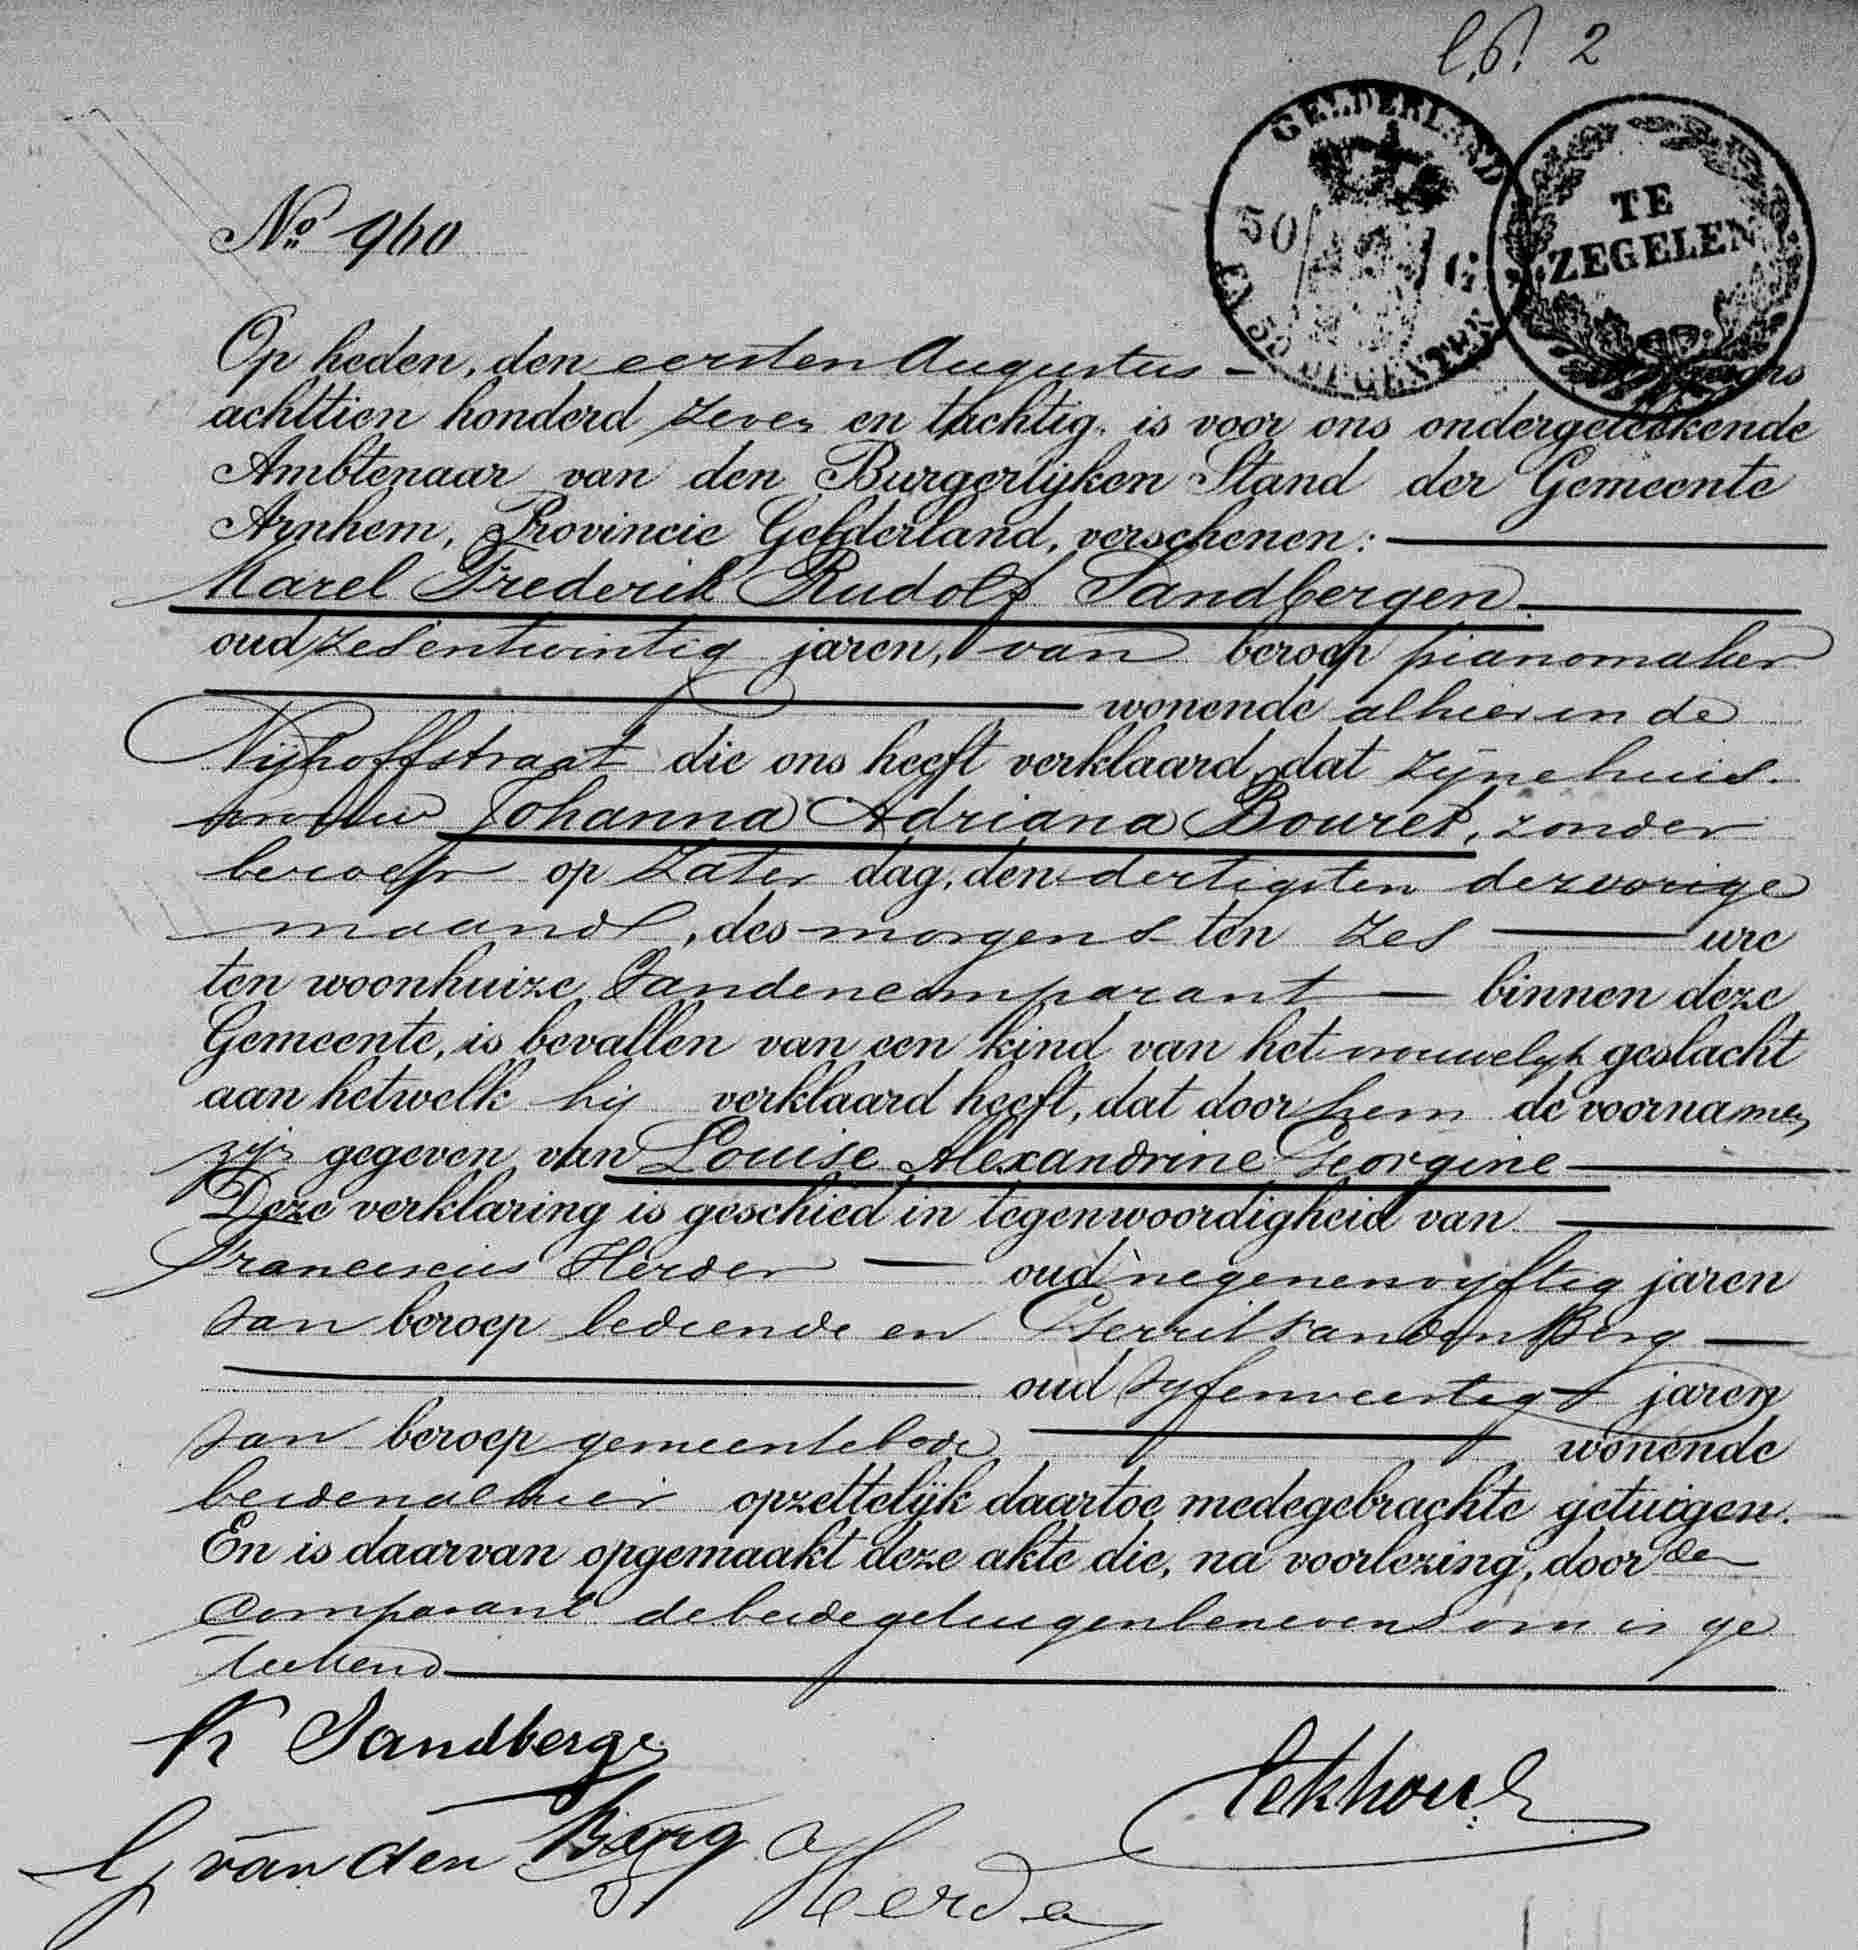 2
GELDERLAND
50 G
EN 50 OPCENTEN
TE
ZEGELEN
No 960
Op heden, den eersten Augustus
achttien honderd zeven en tachtig, is voor ons ondergeteekende
Ambtenaar van den Burgerlijken Stand der Gemeente
Arnhem, Provincie Gelderland, verschenen:
Karel Frederik Rudolf Sandbergen
oud zesentwintig jaren, van beroep pianomaker
wonende alhier in de
Nijhoffstraat die ons heeft verklaard, dat zijne huis-
vrouw Johanna Adriana Bouret, zonder
beroep op Zater dag, den dertigsten der vorige
maand, des morgens ten zes ure
ten woonhuize van den comparant binnen deze
Gemeente, is bevallen van een kind van het vrouwelijk geslacht
aan hetwelk hij verklaard heeft, dat door hem de voornamen
zijn gegeven van Louise Alexandrine Georgine
Deze verklaring is geschied in tegenwoordigheid van
Franciscus Herder oud negenenvijftig jaren
van beroep bediende en Gerrit van den Berg
oud vijfenveertig jaren
van beroep gemeentebode wonende
beiden alhier opzettelijk daartoe medegebrachte getuigen.
En is daarvan opgemaakt deze akte die, na voorlezing, door den
comparant de beide getuigen benevens ons is ge
teekend
K Sandbergen
G van den Berg
Herder